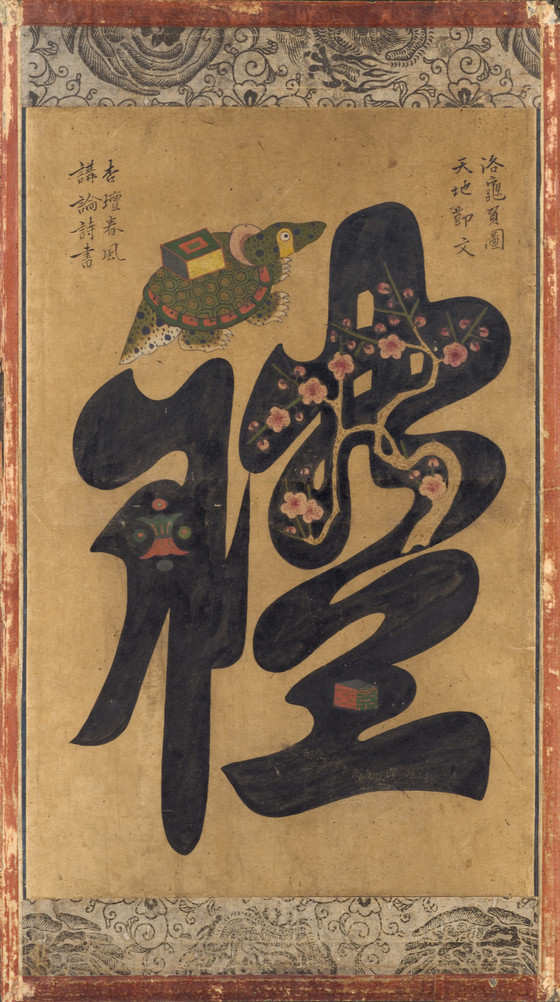 洛龜負圖
天地節文
杏壇春風
講論詩書
禮